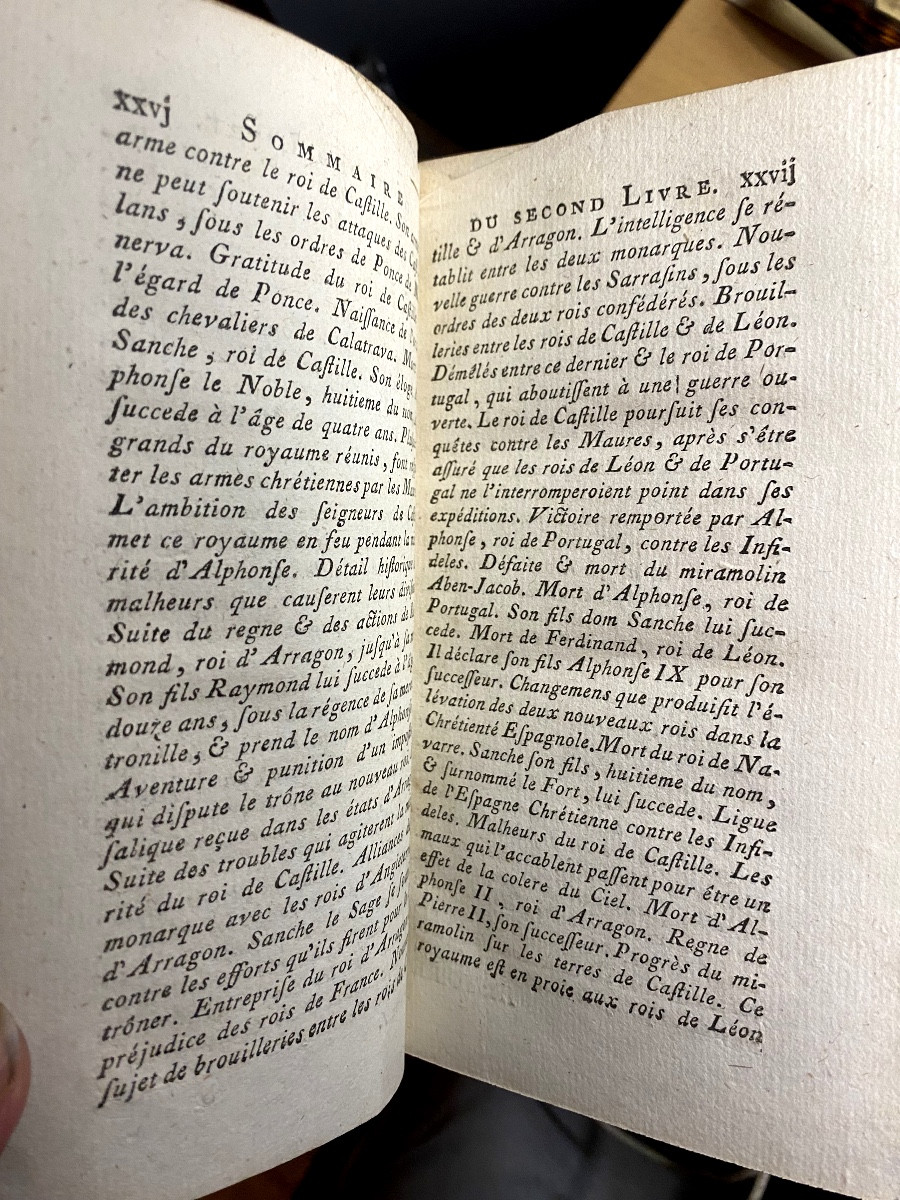 xxvj SOMMAIRE
arme contre le roi de Caſtille. Son
ne peut ſoutenir les attaques des
lans, ſous les ordres de Ponce de
nerva. Gratitude du roi de
l'égard de Ponce. Naiſſance de
des chevaliers de Calatrava.
Sanche, roi de Caſtille. Son
phonſe le Noble, huitieme du
ſuccede à l'âge de quatre ans.
grands du royaume réunis, font
ter les armes chrétiennes par les
L'ambition des ſeigneurs de
met ce royaume en feu pendant la
rité d'Alphonſe. Détail
malheurs que cauſerent leurs
Suite du regne & des actions de
mond, roi d'Arragon, juſqu'à
Son fils Raymond lui ſuccede à
douze ans, ſous la régence de ſa
tronille, & prend le nom
Aventure & punition d'un
qui diſpute le trône au nouveau
ſalique reçue dans les états
Suite des troubles qui agiterent la
rité du roi de Caſtille. Alliances
monarque avec les rois
d'Arragon. Sanche le Sage ſe
contre les efforts qu'ils firent pour
trôner. Entrepriſe du roi
préjudice des rois de France.
ſujet de brouilleries entre les rois
DU SECOND LIVRE. xxvij
tille & d'Arragon. L'intelligence ſe ré-
tablit entre les deux monarques. Nou-
velle guerre contre les Sarraſins, ſous les
ordres des deux rois confédérés. Brouil-
leries entre les rois de Caſtille & de Léon.
Démêlés entre ce dernier & le roi de Por-
tugal, qui aboutiſſent à une guerre ou-
verte. Le roi de Caſtille pourſuit ſes con-
quêtes contre les Maures, après s'être
aſſuré que les rois de Léon & de Portu-
gal ne l'interromperoient point dans ſes
expéditions. Victoire remportée par Al-
phonſe, roi de Portugal, contre les Infi-
deles. Défaite & mort du miramolin
Aben-Jacob. Mort d'Alphonſe, roi de
Portugal. Son fils dom Sanche lui ſuc-
cede. Mort de Ferdinand, roi de Léon.
Il déclare ſon fils Alphonſe IX pour ſon
ſucceſſeur. Changemens que produiſit l'é-
lévation des deux nouveaux rois dans la
Chrétienté Eſpagnole. Mort du roi de Na-
varre. Sanche ſon fils, huitieme du nom,
& ſurnommé le Fort, lui ſuccede. Ligue
de l'Eſpagne Chrétienne contre les Infi-
deles. Malheurs du roi de Caſtille. Les
maux qui l'accablent paſſent pour être un
effet de la colere du Ciel. Mort d'Al-
phonſe II, roi d'Arragon. Regne de
Pierre II, ſon ſucceſſeur. Progrès du mi-
ramolin ſur les terres de Caſtille. Ce
royaume eſt en proie aux rois de Léon